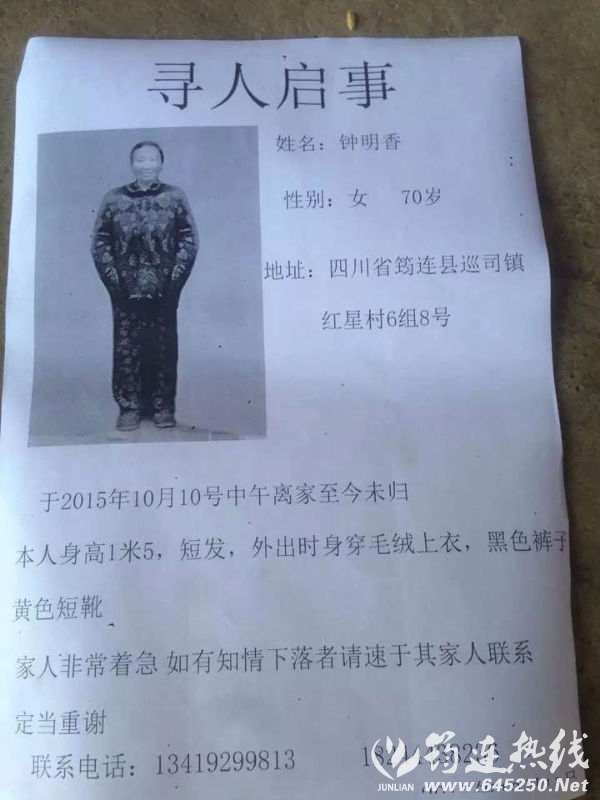 寻人启事
姓名：钟明香
性别：女 70岁
地址：四川省筠连县巡司镇
红星村6组8号
于2015年10月10号中午离家至今未归
本人身高1米5，短发，外出时身穿毛绒上衣，黑色裤子
黄色短靴
家人非常着急 如有知情下落者请速于其家人联系
定当重谢
联系电话：13419299813
筠连热线
JUNLIAN
www.645250.Net